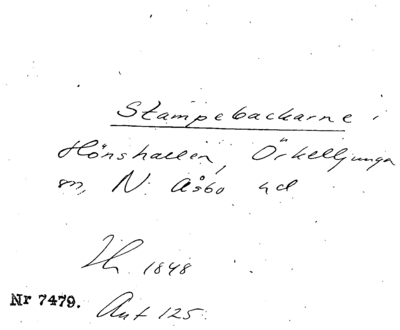 Stampebackarne i
Hönshallen, Örkelljunga
sn, N. Åsbo hd
1848
Nr 7479. Ant 125.